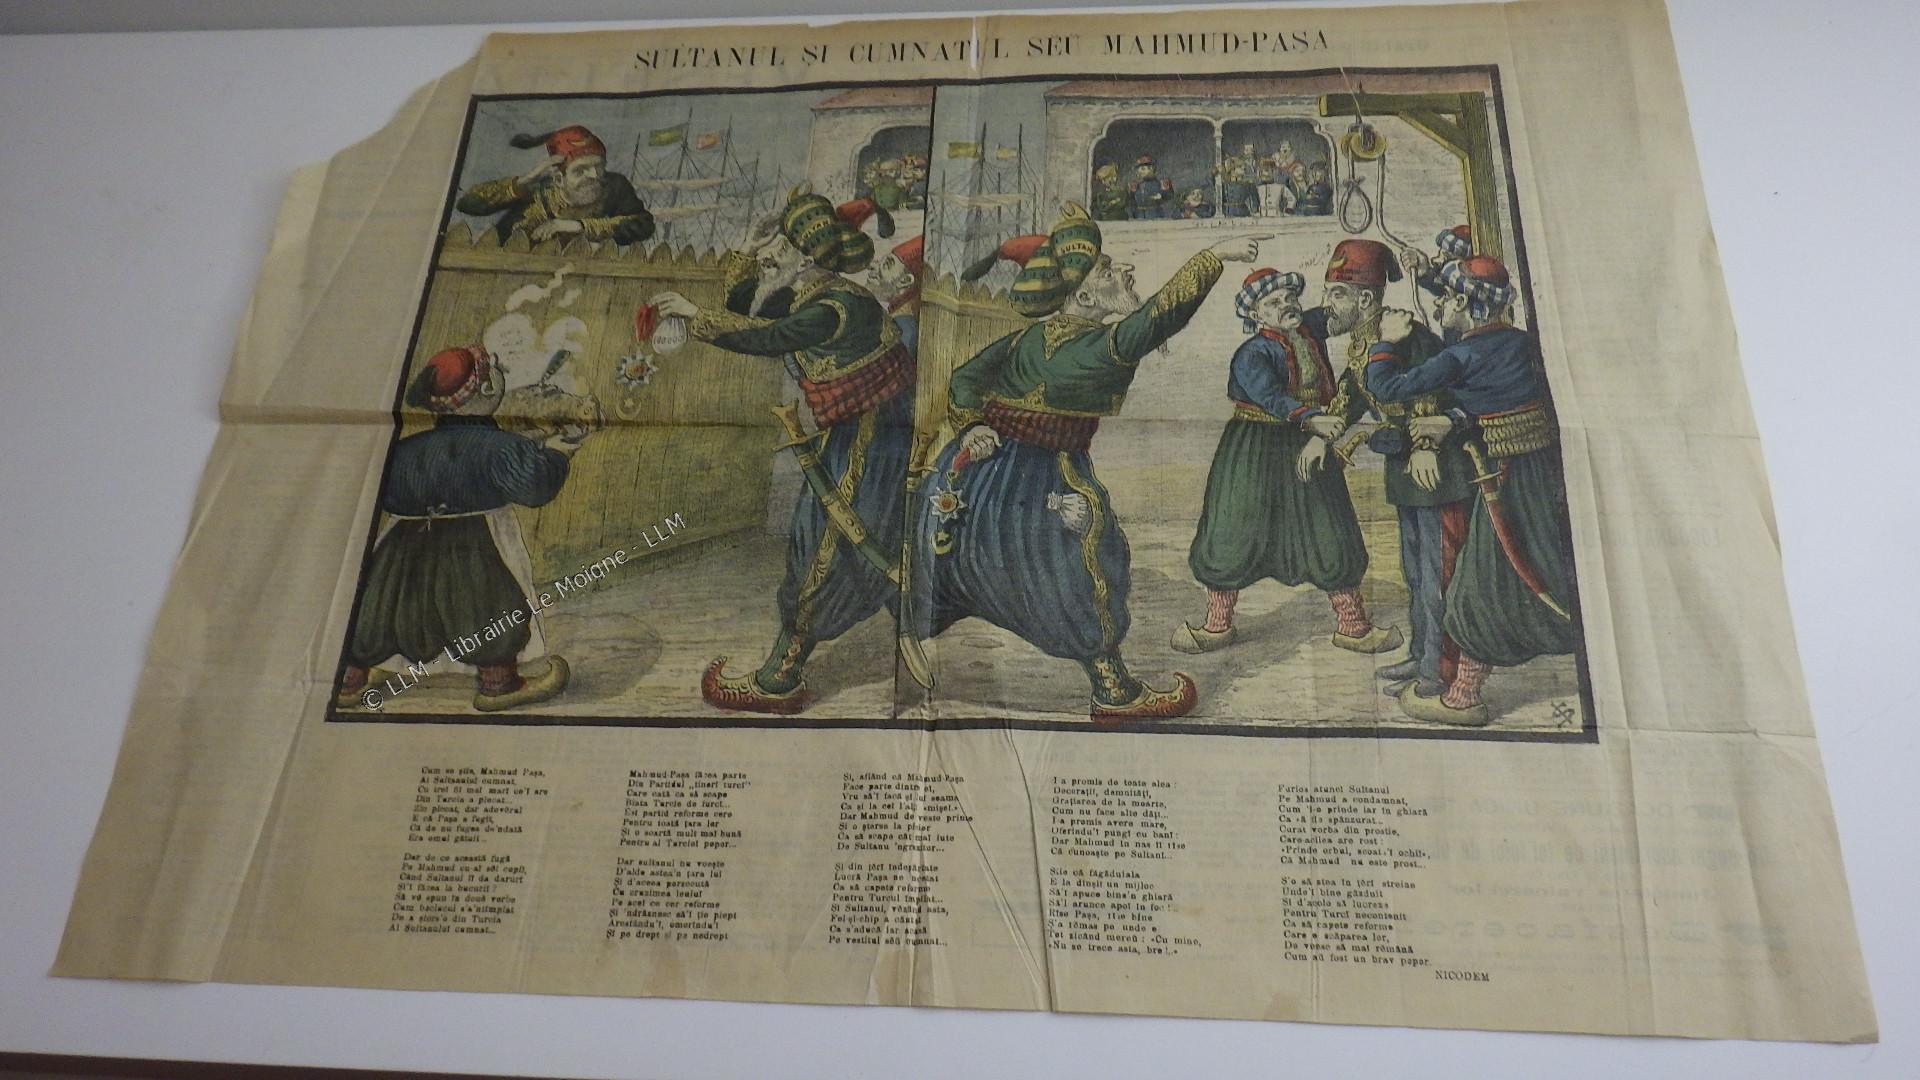 SULTANUL ȘI CUMNATUL SEŬ MAHMUD-PAȘA
SULTAN
100.000
SULTAN
© LLM - Librairie Le Moigne - LLM
Cum se știe, Mahmud Pașa,
Al Sultanului cumnat,
Cu trei fii mai mari ce'l are
Din Turcia a plecat...
Zic plecat, dar adevĕrul
E că Pașa a fugit,
Că de nu fugea de'ndată
Era omul gătuit..
Dar de ce această fugă
Pe Mahmud cu-ai sĕi copii,
Când Sultanul îi da daruri
Și'l făcea la bucurii?
Să vĕ spun în două vorbe
Cum boclucul s'a'ntimplat
De a șters'o din Turcia
Al Sultanului cumnat...
Mahmud-Pașa făcea parte
Din Partidul „tineri turci"
Care cată ca să scape
Biata Turcie de furci...
Est partid reforme cere
Pentru toată țara lor
Și o soartă mult mai bună
Pentru al Turciei popor...
Dar sultanul nu voește
D'alde astea'n țara lui
Și d'aceea persecută
Cu cruzimea leului
Pe acei ce cer reforme
Și 'ndrăsnesc să'l țic piept
Arestându'l, omorîndu'l
Și pe drept și pe nedrept
Și, aflând că Mahmud-Pașa
Face parte dintre ei,
Vru să'l facă și lui seama
Ca și la cei l'alți «mișei».
Dar Mahmud de veste prinse
Și o șterse la picior
Ca să scape cât mai iute
De Sultanu 'ngrozitor...
Și din țĕri îndepărtate
Lucră Pașa ne 'ncetat
Ca să capete reforme
Pentru Turcul împilat...
Și Sultanul, vĕzând asta,
Fel-și-chip a căutat
Ca s'aducă iar acasă
Pe vestitul sĕŭ cumnat...
I a promis de toate alea:
Decorații, demnități,
Grațierea de la moarte,
Cum nu face alte dăți...
I-a promis avere mare,
Oferindu'i pungi cu bani:
Dar Mahmud în nas îi rîse
Că cunoaște pe Sultani...
Știe că făgăduiala
E la dînșii un mijloc
Să'l apuce bine'n ghiară
Să'l arunce apoi în foc!..
Rîse Pașa, rîse bine
S'a rămas pe unde e
Tot zicând mereu: «Cu mine,
«Nu se trece asta, bre!..»
Furios atunci Sultanul
Pe Mahmud a condamnat,
Cum 'l-o prinde iar în ghiară
Ca să fie spânzurat...
Curat vorba din prostie,
Care-acilea are rost:
«Prinde orbul, scoate'i ochii»,
Că Mahmud nu este prost...
S'o să stea în țĕri streine
Unde'i bine găzduit
Și d'acolo să lucreze
Pentru Turci necontenit
Ca să capete reforme
Care e scăparea lor,
De voesc să mai rămână
Cum aŭ fost un brav popor.
NICODEM